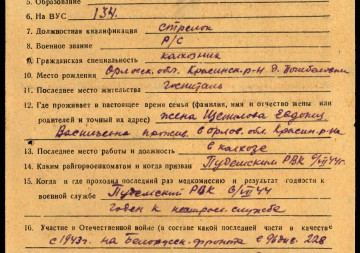 5. Образование
6. На ВУС 134.
7. Должностная квалификация стрелок
8. Военное звание р/с
9. Гражданская специальность колхозник
10. Место рождения Орловск. обл. Краснин. р-н д.
11. Последнее место жительства госпиталь
12. Где проживает в настоящее время семья (фамилия, имя и отчество жены или
родителей и точный их адрес) жена Евдокия
Васильевна прожив. в Орлов. обл. Краснин. р-на
13. Последнее место работы и должность в колхозе
14. Каким райгорвоенкоматом и когда призван РВК
15. Когда и где проходил последний раз медкомиссию и результат годности к
военной службе РВК 6/VII 44
годен к нестроев. службе
16. Участие в Отечественной войне (в составе какой последней части и качестве
с 1943 г. на Белорусск. фронте с 228